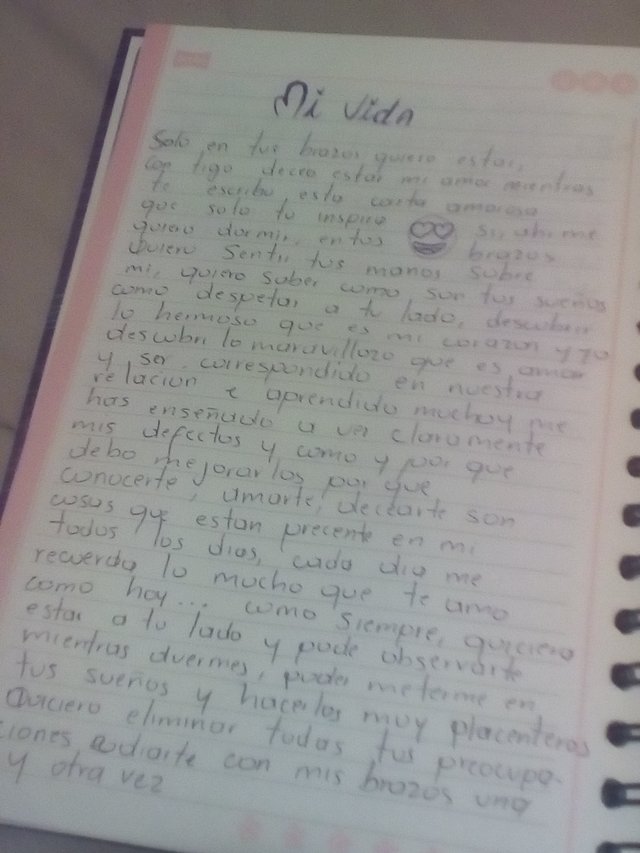 Mi vida
Solo en tus brazos quiero estar,
con tigo deceo estar mi amor mientras
te escribo esta carta amorosa
que solo tu inspira
quiero dormir, en tus brazos
quiero Sentir tus manos sobre
mi, quiero saber como son tus sueños
como despetar a tu lado, descubrir
lo hermoso que es mi corazon y yo
descubri lo maravillozo que es amar
y ser correspondido en nuestra
relacion e aprendido mucho y me
has enseñado a ver claramente
mis defectos y como y por que
debo mejorarlos por que
conocerte, amarte, decearte son
cosas que estan precente en mi
todos los dias, cada dia me
recuerda lo mucho que te amo
como hoy... como siempre, quiciera
estar a tu lado y pode observarte
mientras duermes, poder meterme en
tus sueños y hacerlos muy placenteros
Quiciero eliminar todas tus preocupa-
ciones con mis brazos una
y otra vez